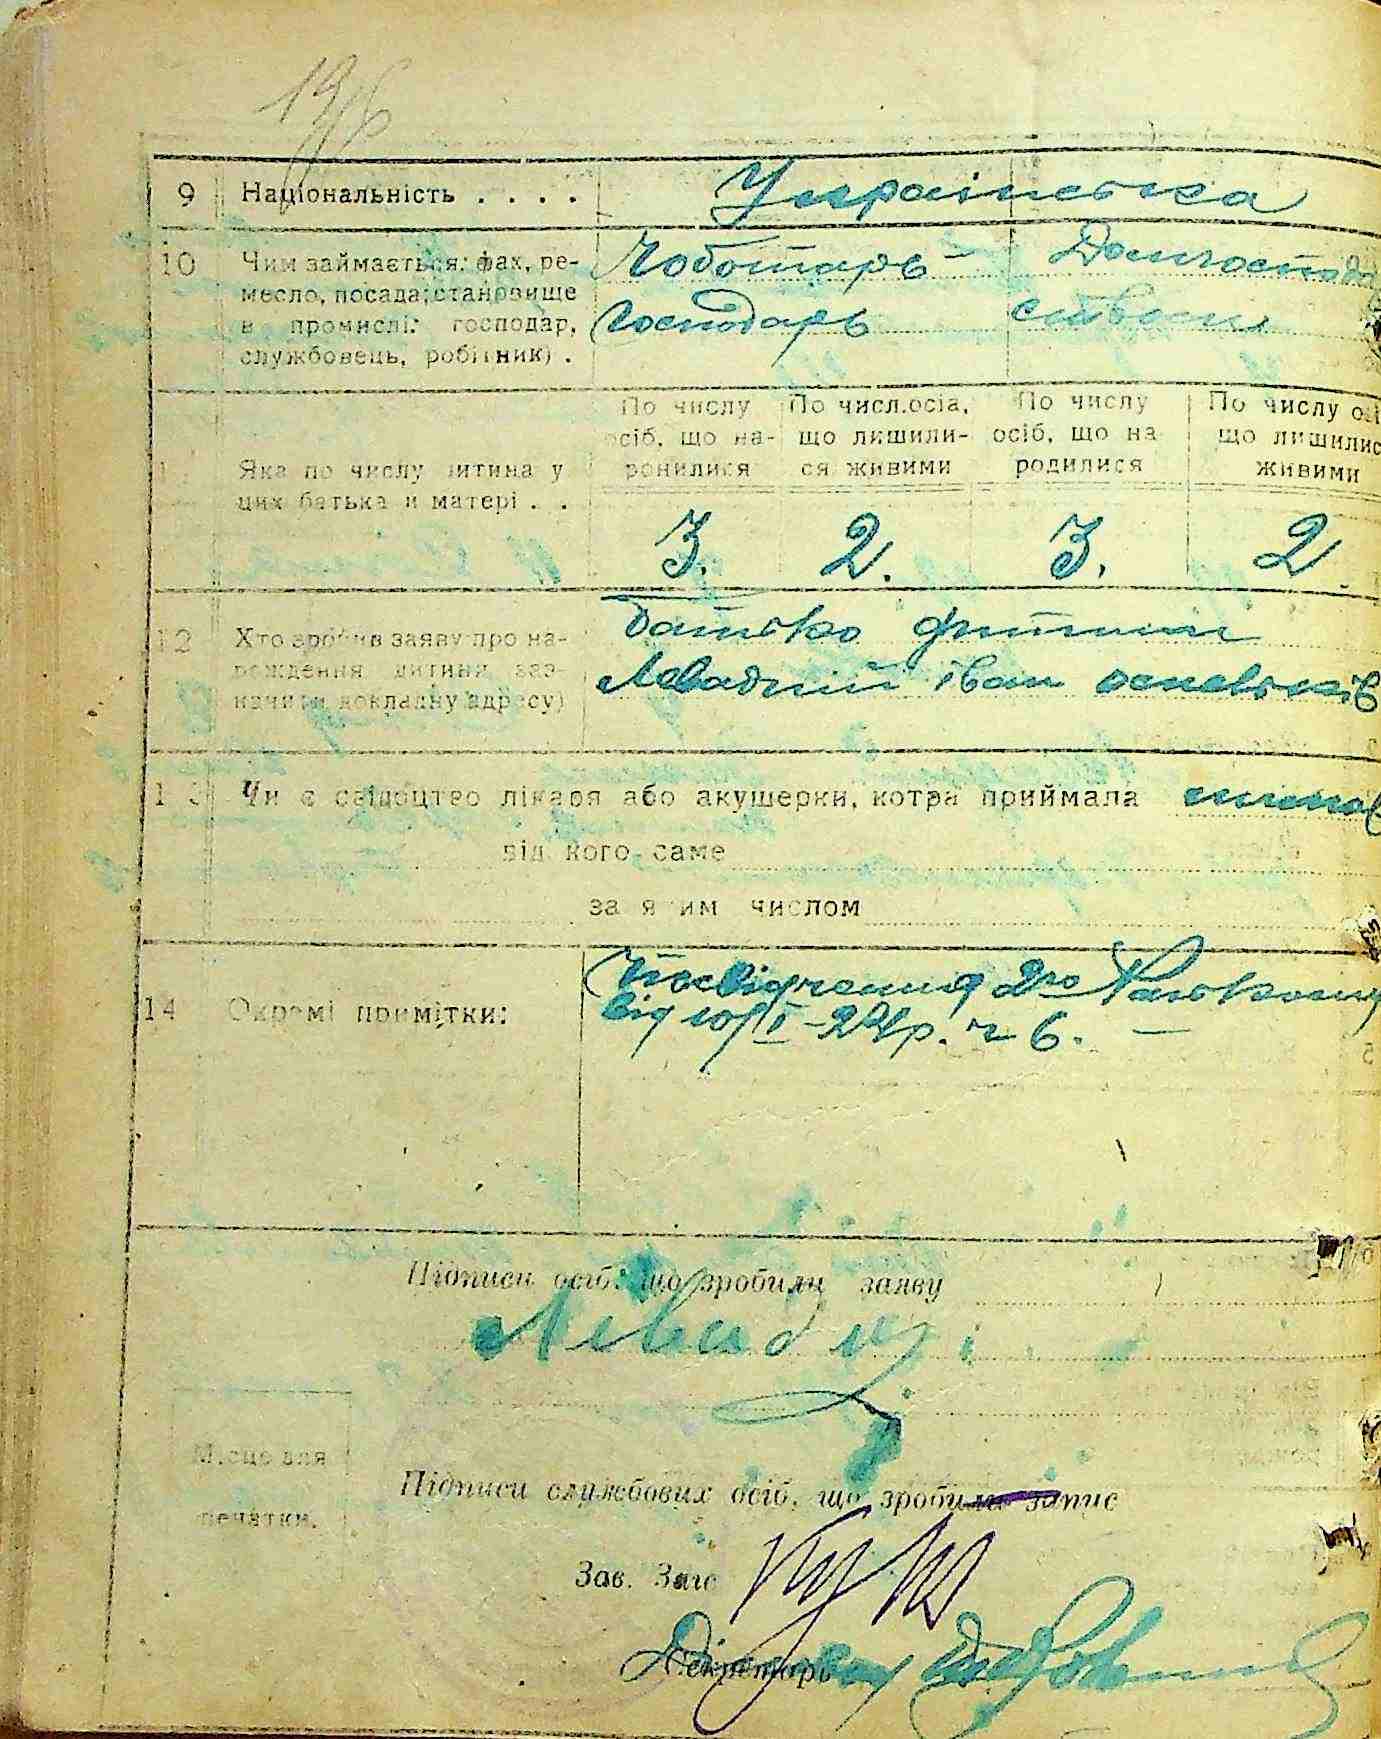 9 Національність . . . . Українська
10 Чим займається: фах, ре- Чоботарь Домгоспода
месло, посада; становище господарь ством
в промислі: господар,
службовець, робітник) .
По числу По числ.осіа, По числу По числу
осіб, що на- що лишили- осіб, що на що лишилис
родилися ся живими родилися живими
Яка по числу дитина у
цих батька и матері . .
3. 2. 3. 2
12 Хто зробив заяву про на- Батько дитини
родження дитини заз- Левадний іван
начити докладну адресу)
13 Чи є свідоцтво лікаря або акушерки, котра приймала
від кого саме
за яким числом
14 Окремі примітки: Посвідчення 2го
від 10/I-24р. ч 6. —
Підписи осіб, що зробили заяву
Левадн
Місце для
печатки.
Підписи службових осіб, що зробили запис
Зав. Загс
Секретарь